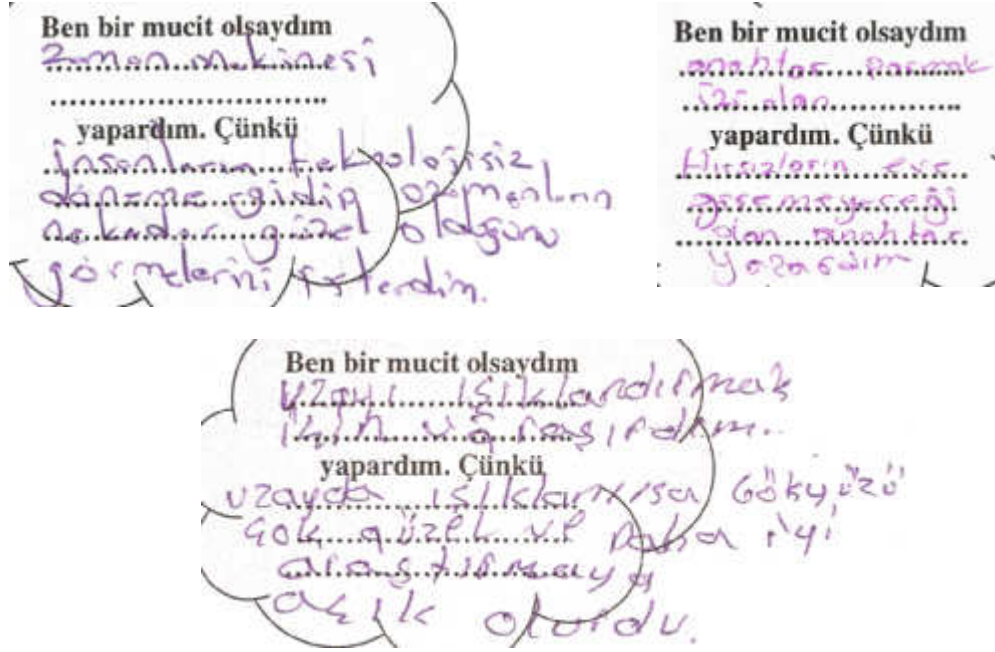 Ben bir mucit olsaydım
Zaman makinesi
yapardım. Çünkü
insanların teknolojisiz
döneme gidip o zamanların
ne kadar güzel olduğunu
görmelerini isterdim.
Ben bir mucit olsaydım
anahtar parmak
izi olan
yapardım. Çünkü
Hırsızların eve
giremeyeceği
olan anahtar
yapardım
Ben bir mucit olsaydım
uzayı ışıklandırmak
için uğraşırdım..
yapardım. Çünkü
uzayda ışıklanırsa Gökyüzü
çok güzel ve Daha iyi
araştırmaya
açık olurdu.